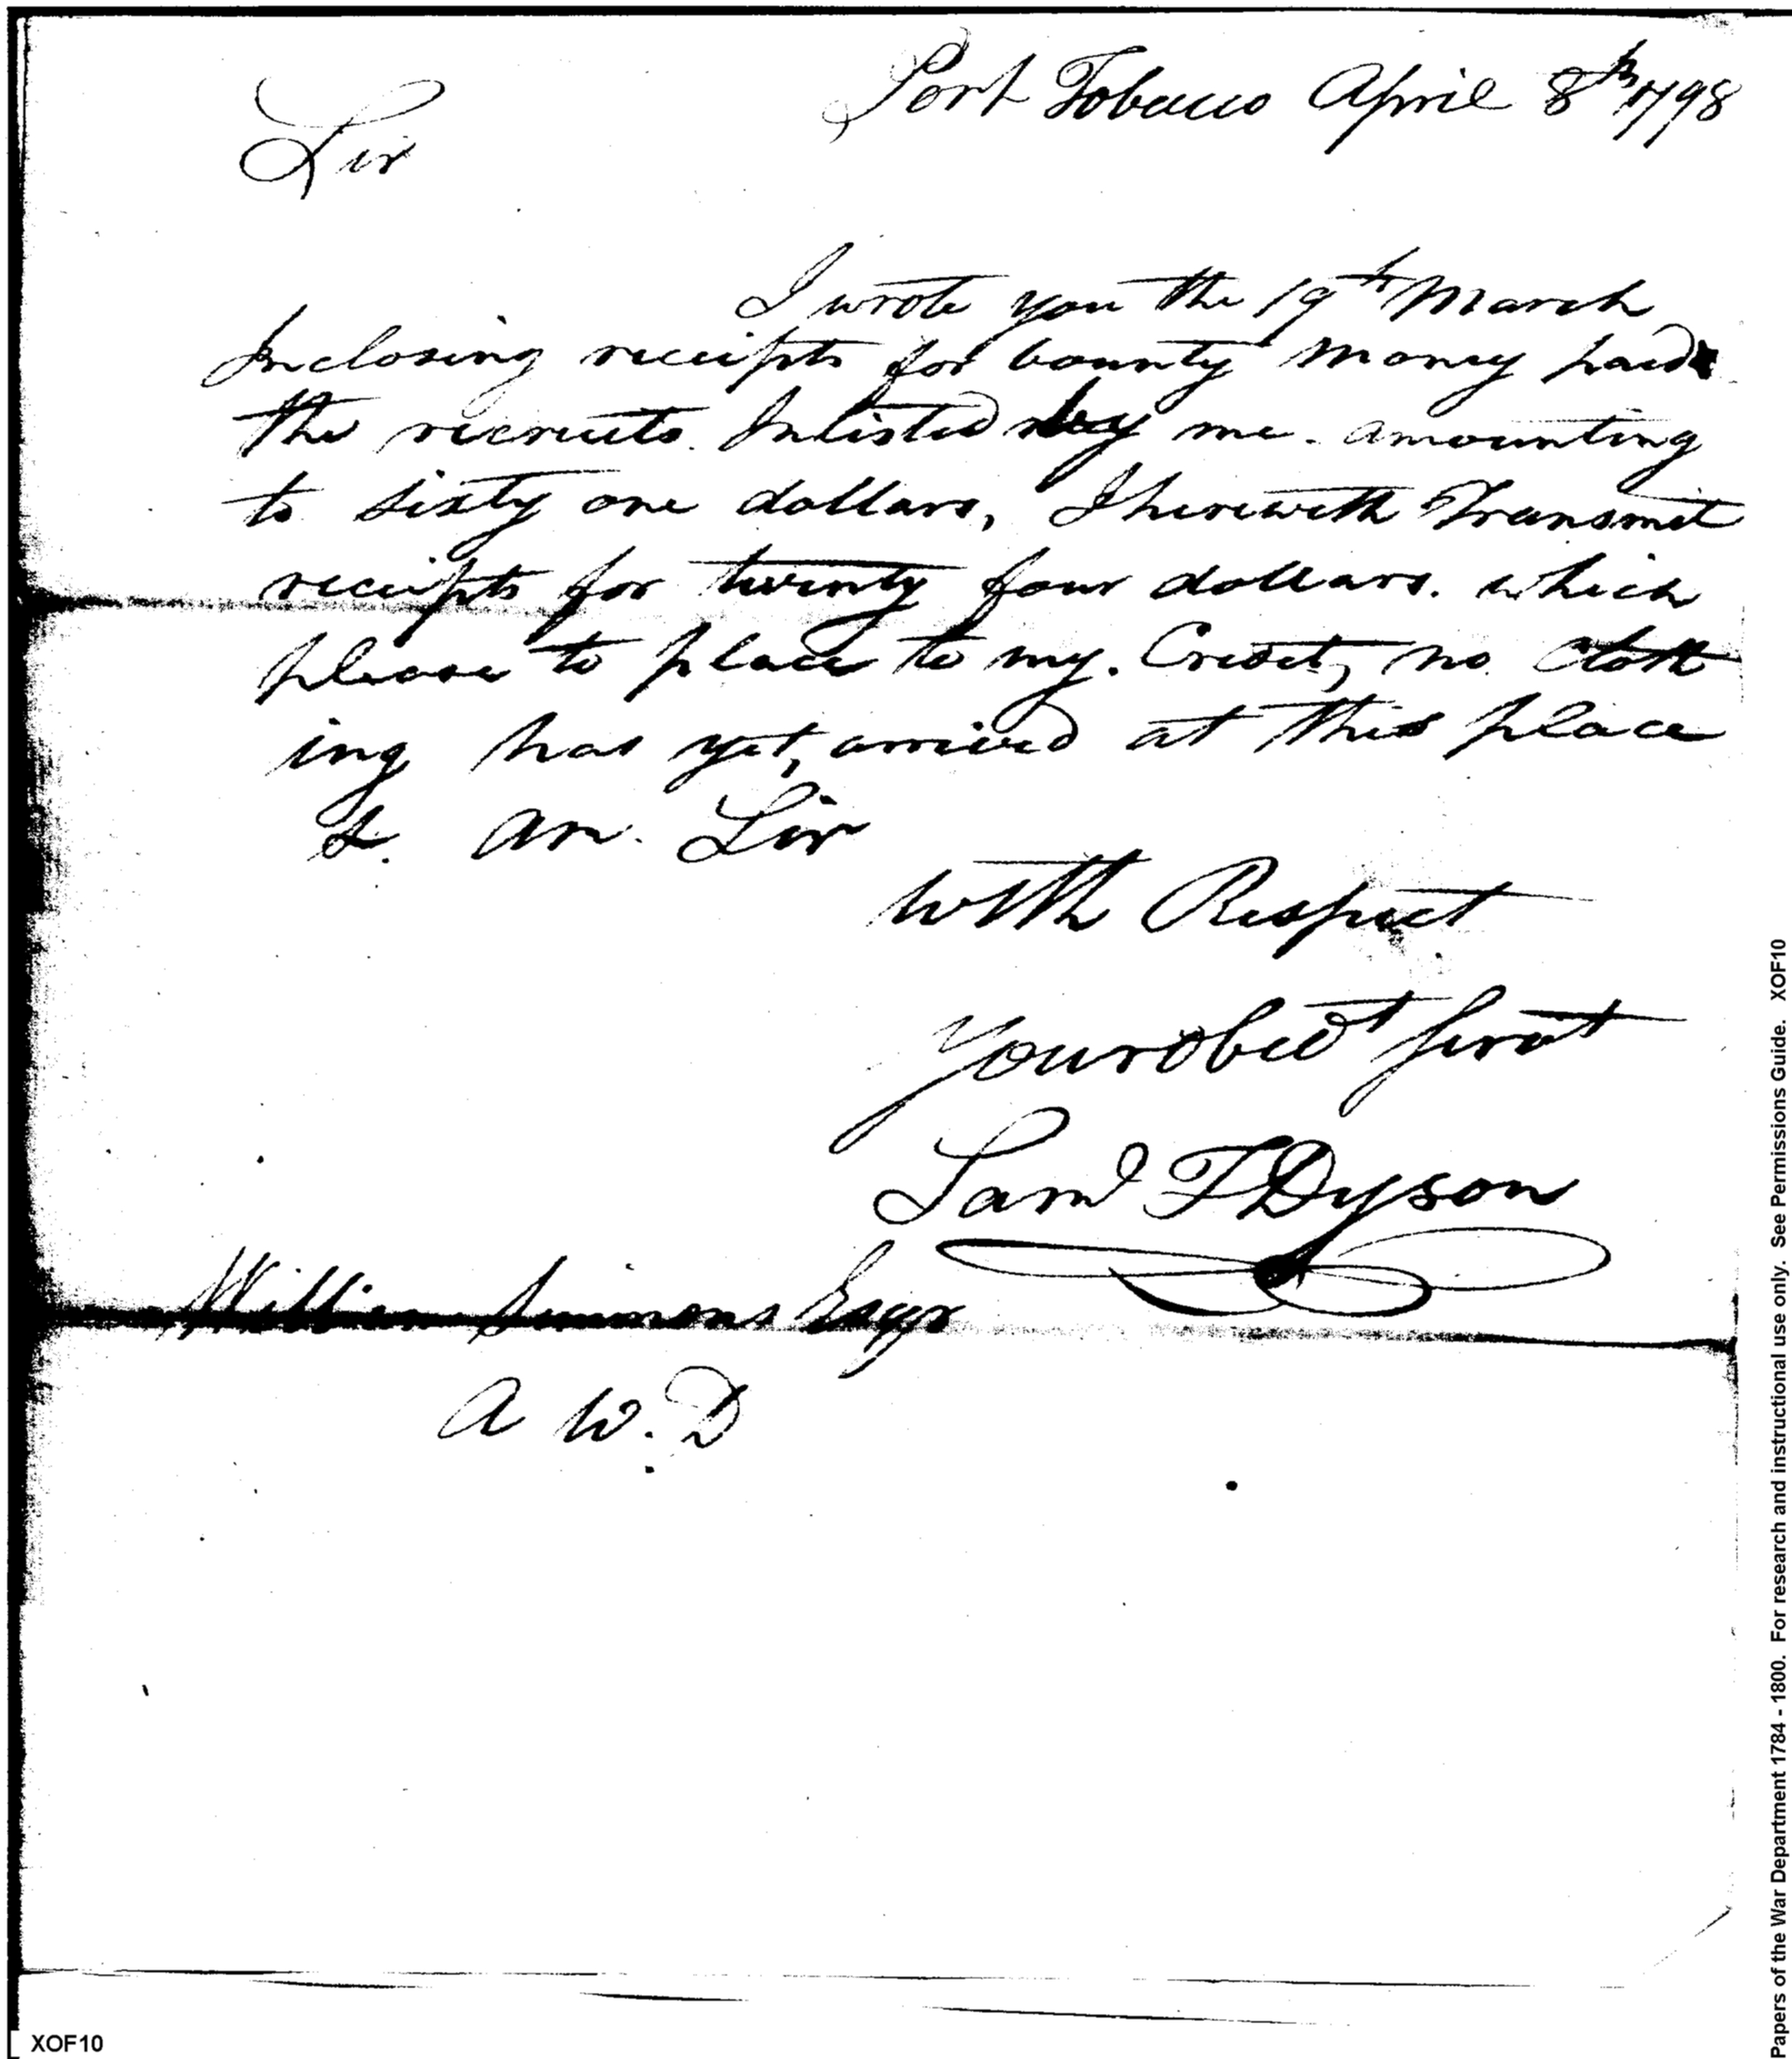 Port Tobacco April 8th 1798
Sir
I wrote you the 19th March
Inclosing receipts for bounty Money paid
the recruits. Inlisted by me. amounting
to sixty one dollars, I herewith Transmit
receipts for twenty four dollars. which
please to place to my. Credit, no. Cloth
ing has yet, arrived at this place
I. am. Sir
with Respect
Your obedt servt
Saml T Dyson
William Simmons Esqr
A W. D
XOF10
Papers of the War Department 1784 - 1800. For research and instructional use only. See Permissions Guide. XOF10